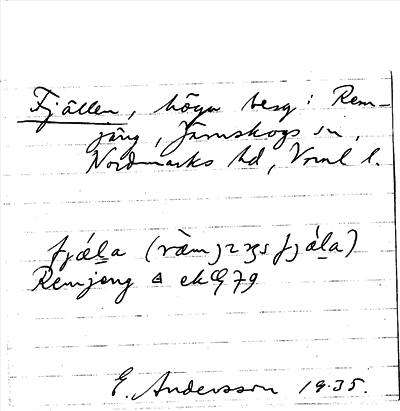 Fjällen, höga berg i Rem-
jäng, Järnskogs sn,
Nordmarks hd, Vrml l.
fjäla (
Remjäng
E. Andersson 1935.